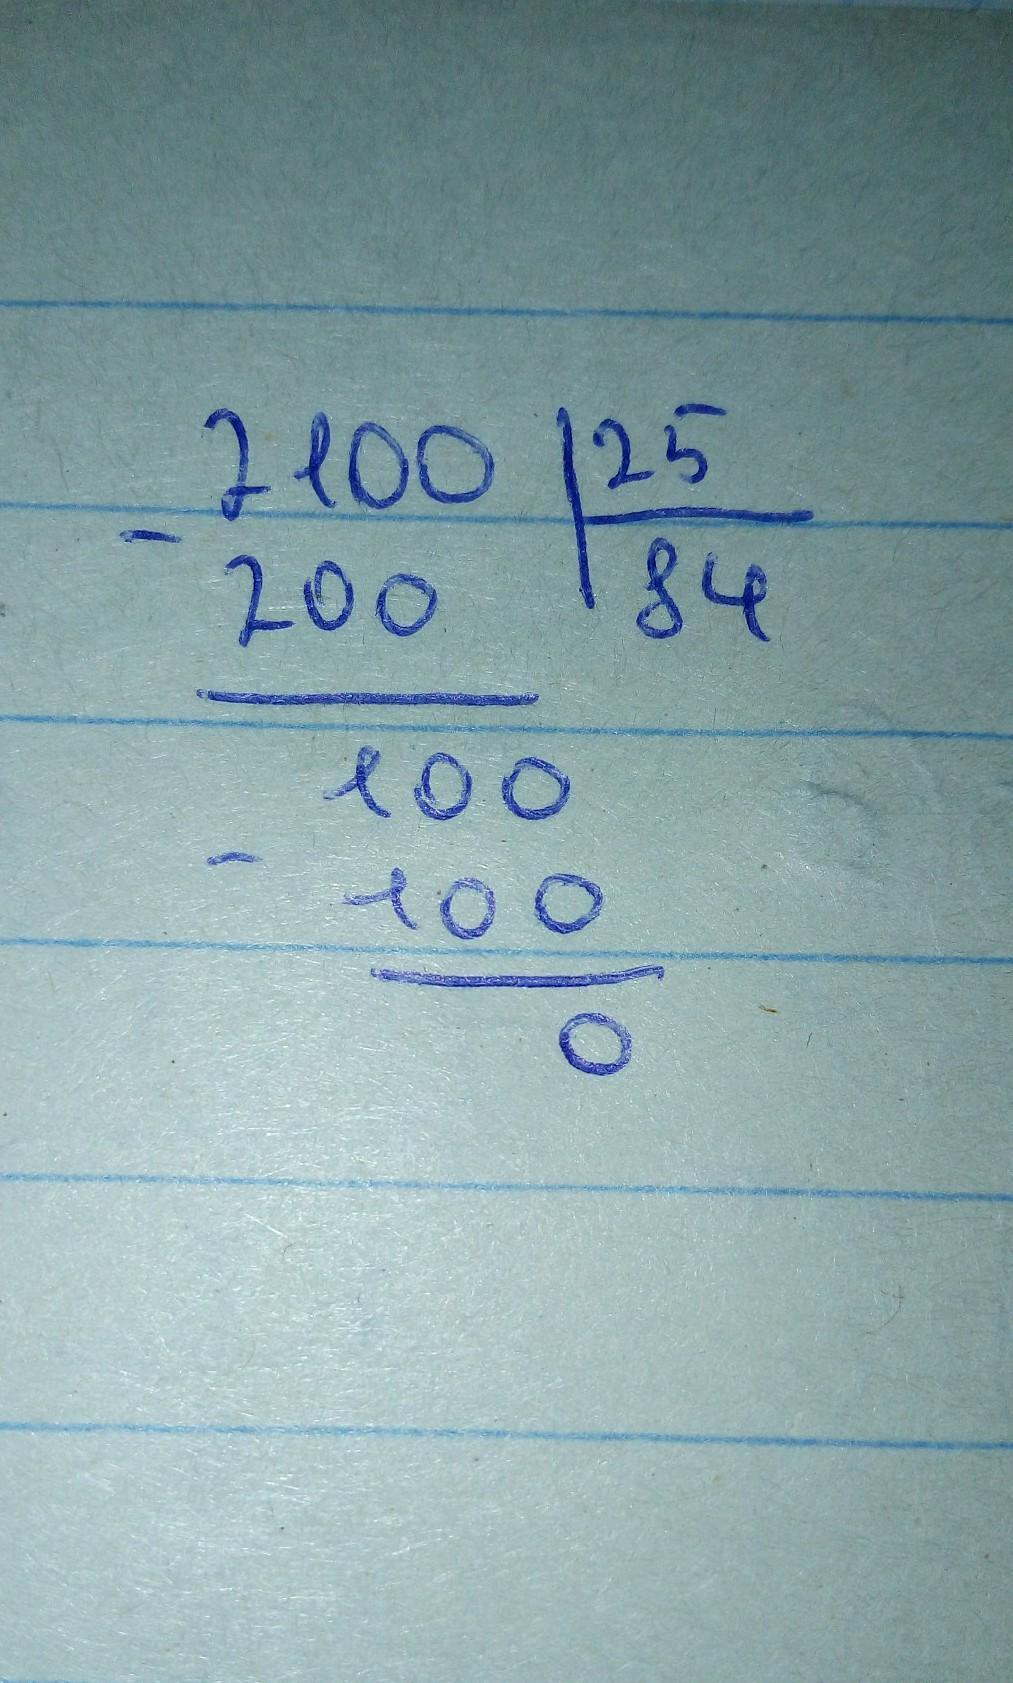 2100 | 25
- 200 84
100
- 100
0